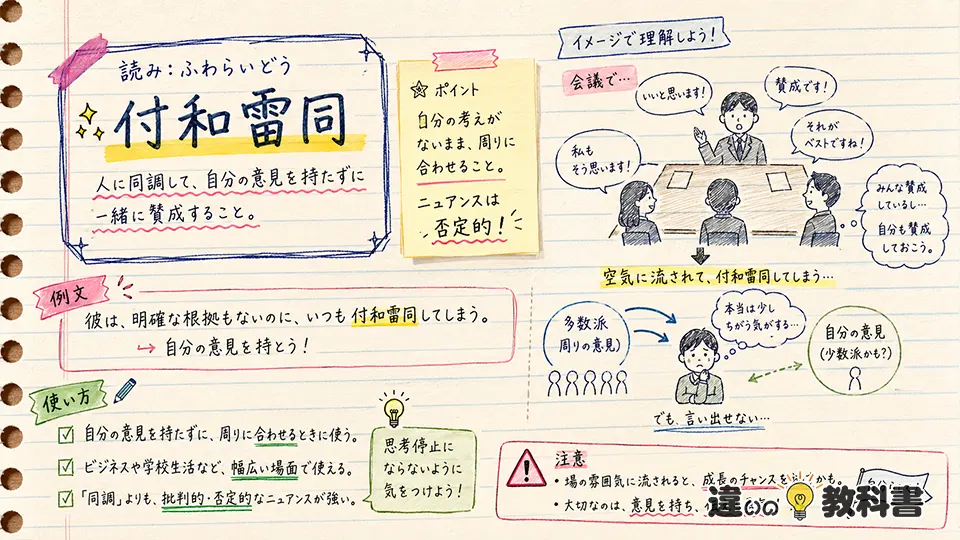 読み：ふわらいどう
付和雷同
人に同調して、自分の意見を持たずに
一緒に賛成すること。
☆ ポイント
自分の考えが
ないまま、周りに
合わせること。
ニュアンスは
否定的！
イメージで理解しよう！
会議で…
いいと思います！
賛成です！
私も
そう思います！
それが
ベストですね！
みんな賛成
しているし…
自分も賛成
しておこう。
空気に流されて、付和雷同してしまう…
例文
彼は、明確な根拠もないのに、いつも付和雷同してしまう。
→ 自分の意見を持とう！
多数派
(周りの意見)
本当は少し
ちがう気がする…
自分の意見
(少数派かも？)
でも、言い出せない…
使い方
☑ 自分の意見を持たずに、周りに合わせるときに使う。
☑ ビジネスや学校生活など、幅広い場面で使える。
☑ 「同調」よりも、批判的・否定的なニュアンスが強い。
思考停止に
ならないように
気をつけよう！
注意
・場の雰囲気に流されると、成長のチャンスを かも。
・大切なのは、意見を持ち、
違いの教科書